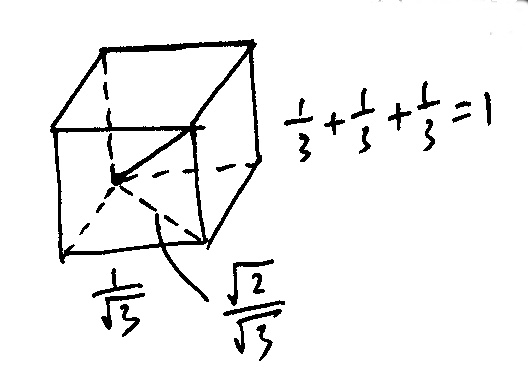 1/3 + 1/3 + 1/3 = 1
1/√3
√2/√3